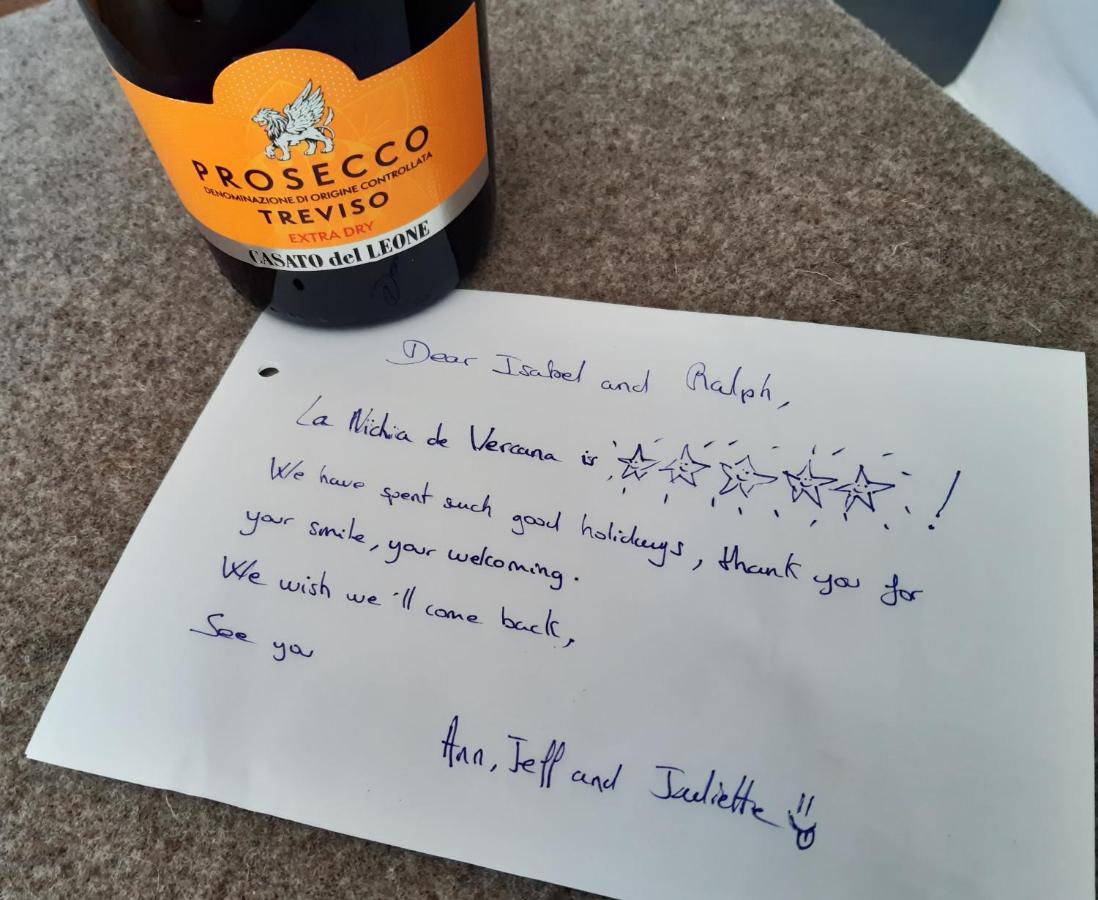 PROSECCO
DENOMINAZIONE DI ORIGINE CONTROLLATA
TREVISO
EXTRA DRY
CASATO del LEONE
Dear Isabel and Ralph,
La Nichia de Vercana is !
We have spent such good holidays, thank you for
your smile, your welcoming.
We wish we'll come back,
See you
Ann, Jeff and Juliette